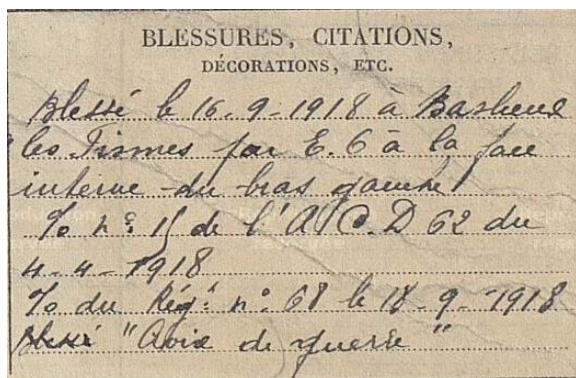 BLESSURES, CITATIONS,
DÉCORATIONS, ETC.
Blessé le 16-9-1918 à Baslieux
les Fismes par E. O à la face
interne du bras gauche
% n° 15 de l'A C. D 62 du
4-4-1918
% du Rég.t n° 68 le 18-9-1918
"Croix de guerre"